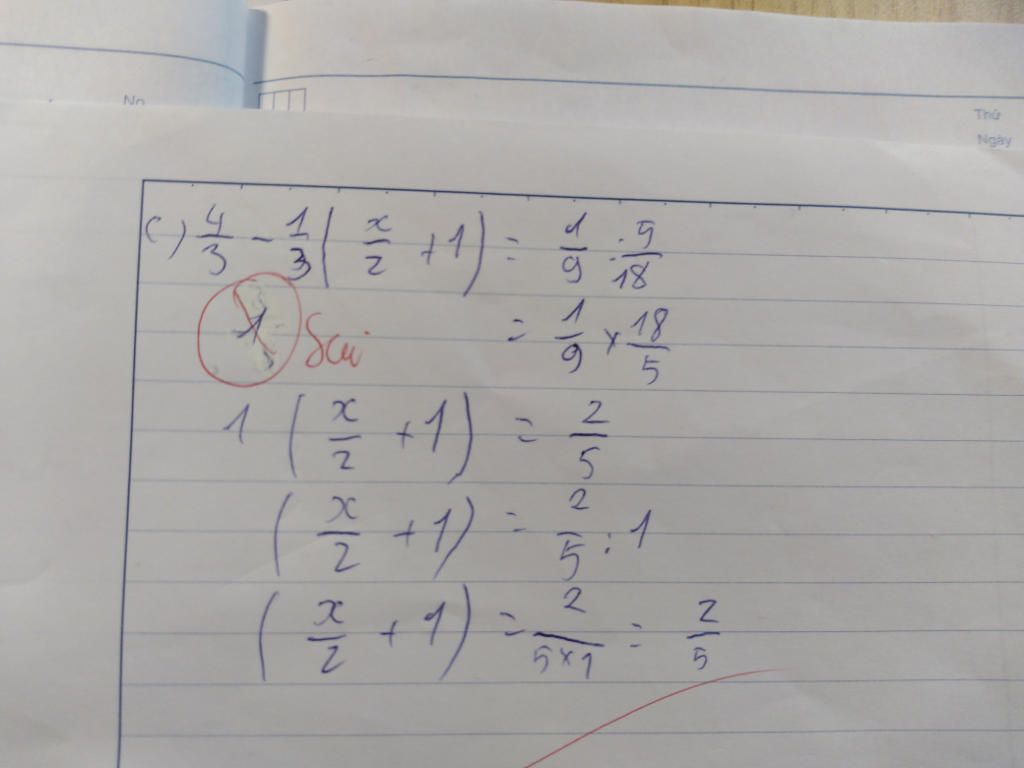 No
Thứ
Ngày
c) 4/3 - 1/3 ( x/2 + 1 ) = 1/9 : 5/18
1 Sai = 1/9 × 18/5
1 ( x/2 + 1 ) = 2/5
( x/2 + 1 ) = 2/5 : 1
( x/2 + 1 ) = 2/(5×1) = 2/5